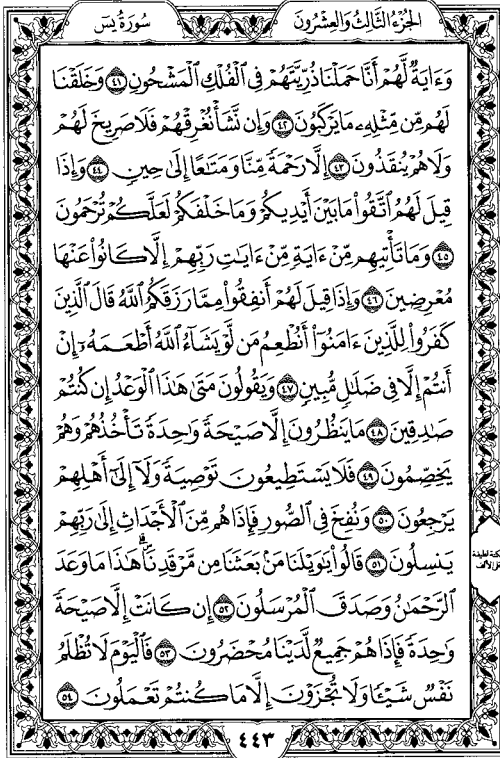 الجزء الثالث والعشرون
سورة يس
وَءَايَةٌ لَّهُمْ أَنَّا حَمَلْنَا ذُرِّيَّتَهُمْ فِي الْفُلْكِ الْمَشْحُونِ ٤١ وَخَلَقْنَا
لَهُم مِّن مِّثْلِهِۦ مَا يَرْكَبُونَ ٤٢ وَإِن نَّشَأْ نُغْرِقْهُمْ فَلَا صَرِيخَ لَهُمْ
وَلَا هُمْ يُنقَذُونَ ٤٣ إِلَّا رَحْمَةً مِّنَّا وَمَتَٰعًا إِلَىٰ حِينٍ ٤٤ وَإِذَا
قِيلَ لَهُمُ اتَّقُوا۟ مَا بَيْنَ أَيْدِيكُمْ وَمَا خَلْفَكُمْ لَعَلَّكُمْ تُرْحَمُونَ
٤٥ وَمَا تَأْتِيهِم مِّنْ ءَايَةٍ مِّنْ ءَايَٰتِ رَبِّهِمْ إِلَّا كَانُوا۟ عَنْهَا
مُعْرِضِينَ ٤٦ وَإِذَا قِيلَ لَهُمْ أَنفِقُوا۟ مِمَّا رَزَقَكُمُ اللَّهُ قَالَ الَّذِينَ
كَفَرُوا۟ لِلَّذِينَ ءَامَنُوٓا۟ أَنُطْعِمُ مَن لَّوْ يَشَآءُ اللَّهُ أَطْعَمَهُۥٓ إِنْ
أَنتُمْ إِلَّا فِي ضَلَٰلٍ مُّبِينٍ ٤٧ وَيَقُولُونَ مَتَىٰ هَٰذَا الْوَعْدُ إِن كُنتُمْ
صَٰدِقِينَ ٤٨ مَا يَنظُرُونَ إِلَّا صَيْحَةً وَٰحِدَةً تَأْخُذُهُمْ وَهُمْ
يَخِصِّمُونَ ٤٩ فَلَا يَسْتَطِيعُونَ تَوْصِيَةً وَلَآ إِلَىٰٓ أَهْلِهِمْ
يَرْجِعُونَ ٥٠ وَنُفِخَ فِي الصُّورِ فَإِذَا هُم مِّنَ الْأَجْدَاثِ إِلَىٰ رَبِّهِمْ
يَنسِلُونَ ٥١ قَالُوا۟ يَٰوَيْلَنَا مَنۢ بَعَثَنَا مِن مَّرْقَدِنَا هَٰذَا مَا وَعَدَ
الرَّحْمَٰنُ وَصَدَقَ الْمُرْسَلُونَ ٥٢ إِن كَانَتْ إِلَّا صَيْحَةً
وَٰحِدَةً فَإِذَا هُمْ جَمِيعٌ لَّدَيْنَا مُحْضَرُونَ ٥٣ فَالْيَوْمَ لَا تُظْلَمُ
نَفْسٌ شَيْـًٔا وَلَا تُجْزَوْنَ إِلَّا مَا كُنتُمْ تَعْمَلُونَ ٥٤
٤٤٣